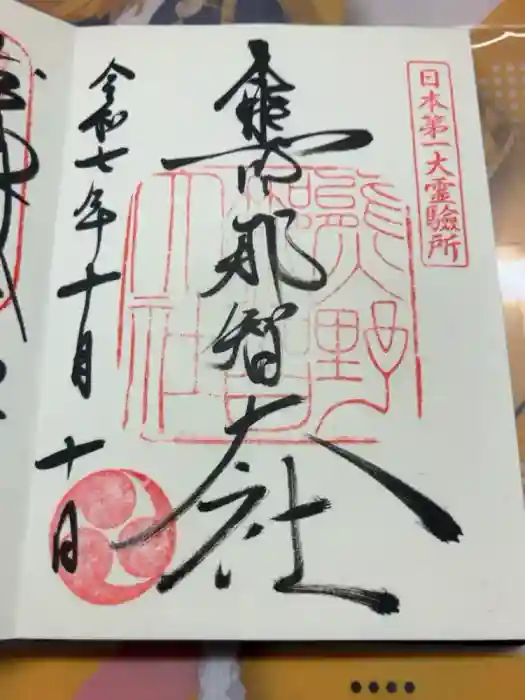 日本第一大霊驗所
熊野那智大社
熊野那智大社
令和七年十月十日